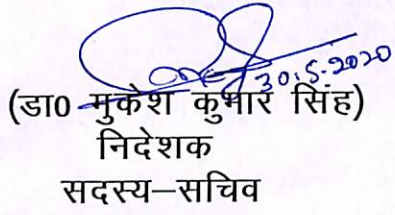 30.5.2020
(डा0 मुकेश कुमार सिंह)
निदेशक
सदस्य–सचिव